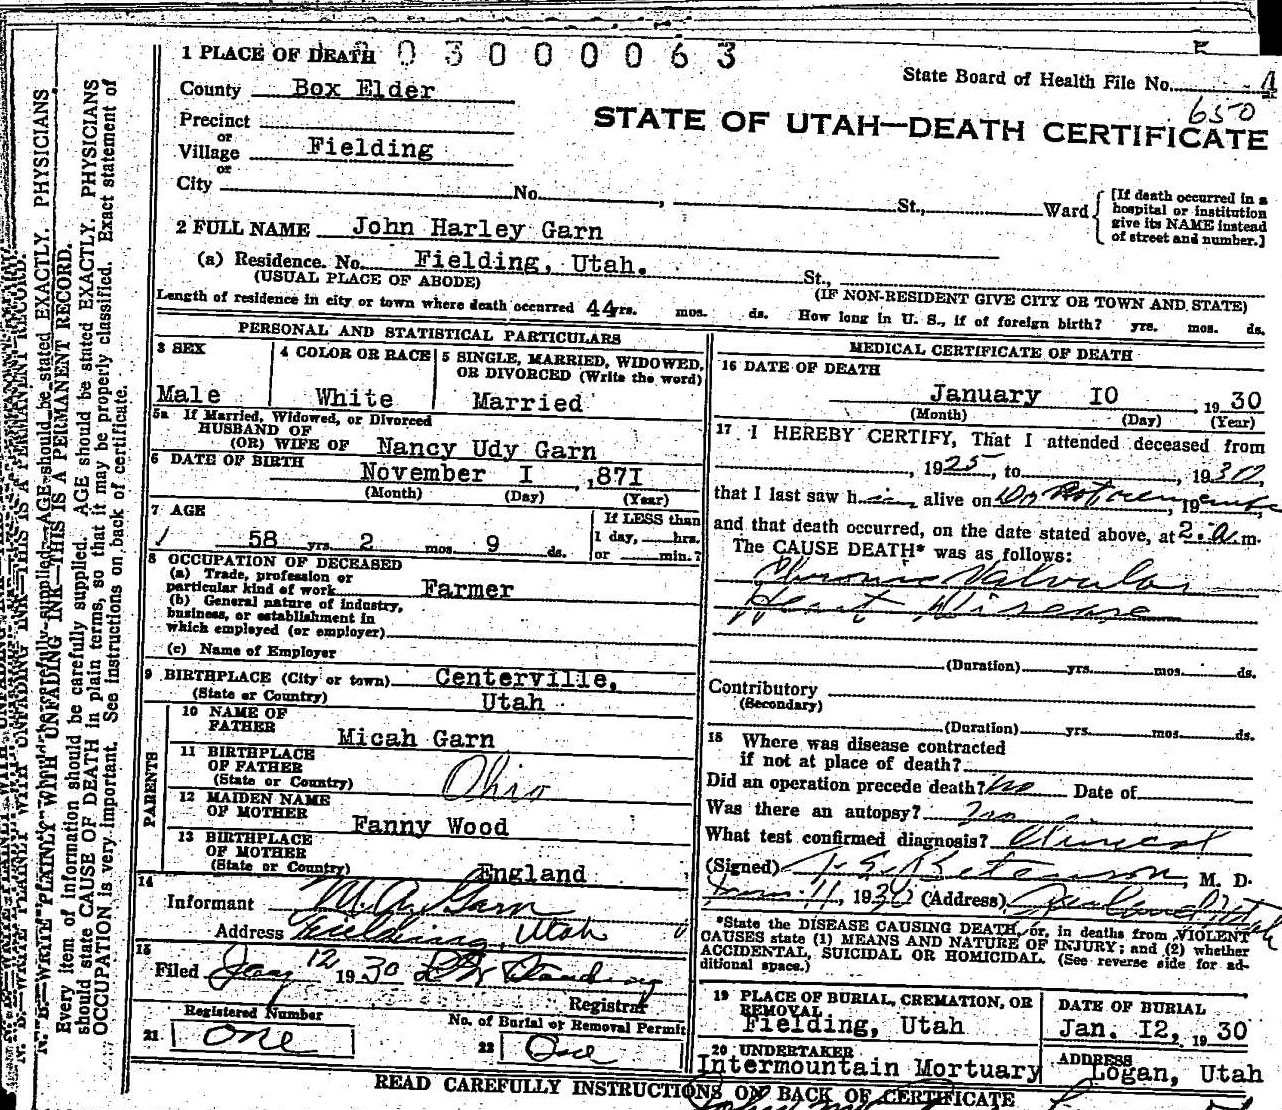 1 PLACE OF DEATH 03000063
State Board of Health File No. 4
650
County Box Elder
STATE OF UTAH—DEATH CERTIFICATE
Precinct
or
Village Fielding
or
City No. , St., Ward
[If death occurred in a
hospital or institution
give its NAME instead
of street and number.]
2 FULL NAME John Harley Garn
(a) Residence. No. Fielding, Utah. St.,
(USUAL PLACE OF ABODE) (IF NON-RESIDENT GIVE CITY OR TOWN AND STATE)
Length of residence in city or town where death occurred 44 yrs. mos. ds. How long in U. S., if of foreign birth? yrs. mos. ds.
PERSONAL AND STATISTICAL PARTICULARS
3 SEX
Male
4 COLOR OR RACE
White
5 SINGLE, MARRIED, WIDOWED,
OR DIVORCED (Write the word)
Married
5a If Married, Widowed, or Divorced
HUSBAND OF
(OR) WIFE OF Nancy Udy Garn
6 DATE OF BIRTH
November I , 1871
(Month) (Day) (Year)
7 AGE
58 yrs. 2 mos. 9 ds.
If LESS than
1 day, hrs.
or min.?
8 OCCUPATION OF DECEASED
(a) Trade, profession or
particular kind of work Farmer
(b) General nature of industry,
business, or establishment in
which employed (or employer)
(c) Name of Employer
9 BIRTHPLACE (City or town) Centerville,
(State or Country) Utah
PARENTS
10 NAME OF
FATHER
Micah Garn
11 BIRTHPLACE
OF FATHER
(State or Country) Ohio
12 MAIDEN NAME
OF MOTHER
Fanny Wood
13 BIRTHPLACE
OF MOTHER
(State or Country) England
14
Informant M. A. Garn
Address Fielding, Utah
15
Filed Jany 12 1930
Registrar
Registered Number
21 One
No. of Burial or Removal Permit
22 One
MEDICAL CERTIFICATE OF DEATH
16 DATE OF DEATH
January IO , 1930
(Month) (Day) (Year)
17 I HEREBY CERTIFY, That I attended deceased from
, 1925, to , 1930,
that I last saw h im alive on , 19
and that death occurred, on the date stated above, at 2. a. m.
The CAUSE DEATH* was as follows:
Chronic Valvular
Heart Disease
(Duration) yrs. mos. ds.
Contributory
(Secondary)
(Duration) yrs. mos. ds.
18 Where was disease contracted
if not at place of death?
Did an operation precede death? No Date of
Was there an autopsy? no
What test confirmed diagnosis? Clinical
(Signed) , M. D.
Jan. 11, 1930 (Address) Utah
*State the DISEASE CAUSING DEATH, or, in deaths from VIOLENT
CAUSES state (1) MEANS AND NATURE OF INJURY; and (2) whether
ACCIDENTAL, SUICIDAL OR HOMICIDAL. (See reverse side for ad-
ditional space.)
19 PLACE OF BURIAL, CREMATION, OR
REMOVAL
Fielding, Utah
DATE OF BURIAL
Jan. I2, 1930
20 UNDERTAKER
Intermountain Mortuary
ADDRESS
Logan, Utah
READ CAREFULLY INSTRUCTIONS ON BACK OF CERTIFICATE
N. B.—WRITE PLAINLY WITH UNFADING INK—THIS IS A PERMANENT RECORD.
Every item of information should be carefully supplied. AGE should be stated EXACTLY. PHYSICIANS
should state CAUSE OF DEATH in plain terms, so that it may be properly classified. Exact statement of
OCCUPATION is very important. See instructions on back of certificate.